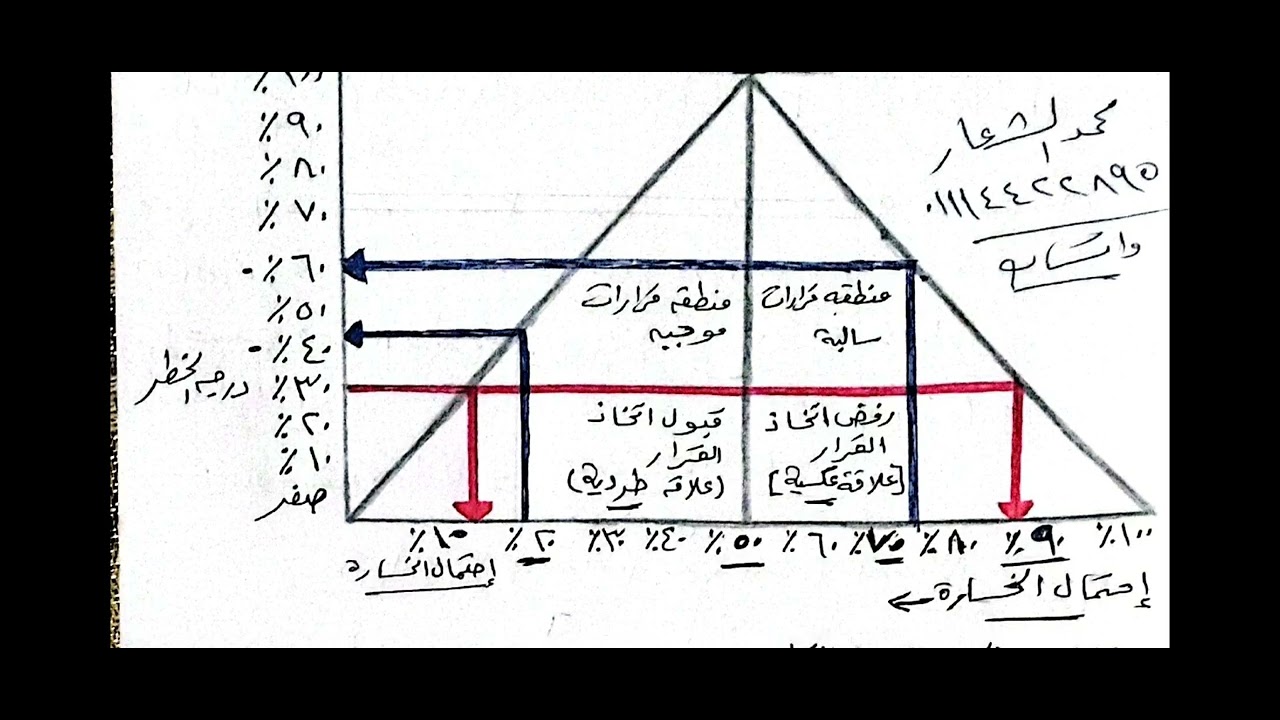 ٪١٠٠
٪٩٠
٪٨٠
٪٧٠
٪٦٠
٪٥٠
٪٤٠
٪٣٠
٪٢٠
٪١٠
صفر
درجه الخطر
محمد الشعار
٠١١١٤٤٢٢٨٩٥
واتساب
منطقه قرارات
سالبة
منطقه قرارات
موجبه
رفض اتخاذ
القرار
[علاقة عكسية]
قبول اتخاذ
القرار
(علاقه طردية)
٪١٠ ٪٢٠ ٪٣٠ ٪٤٠ ٪٥٠ ٪٦٠ ٪٧٥ ٪٨٠ ٪٩٠ ٪١٠٠
إحتمال الخسارة
إحتمال الخسارة